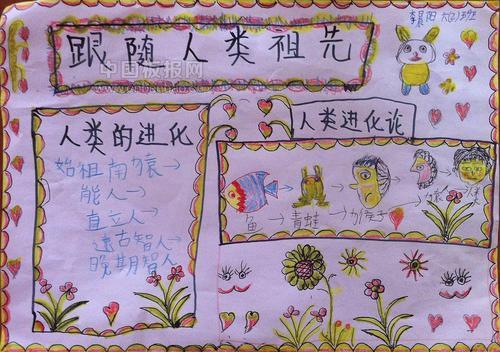 跟随人类祖先
中国板报网
人类的进化
始祖南方猿→
能人→
直立人→
远古智人→
晚期智人
人类进化论
鱼→青蛙→